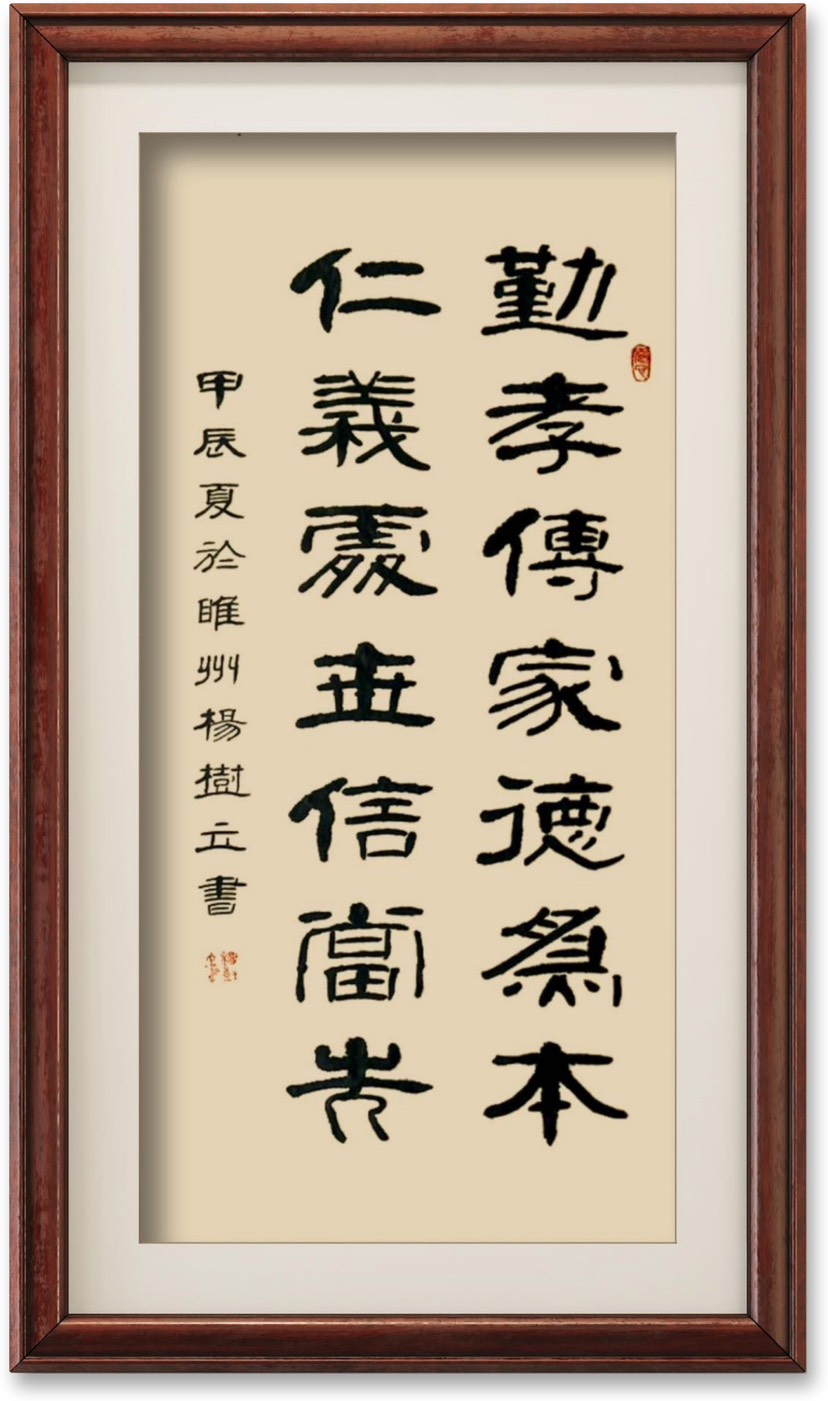 勤孝傳家德為本
仁義處世信當先
甲辰夏於睢州楊樹立書